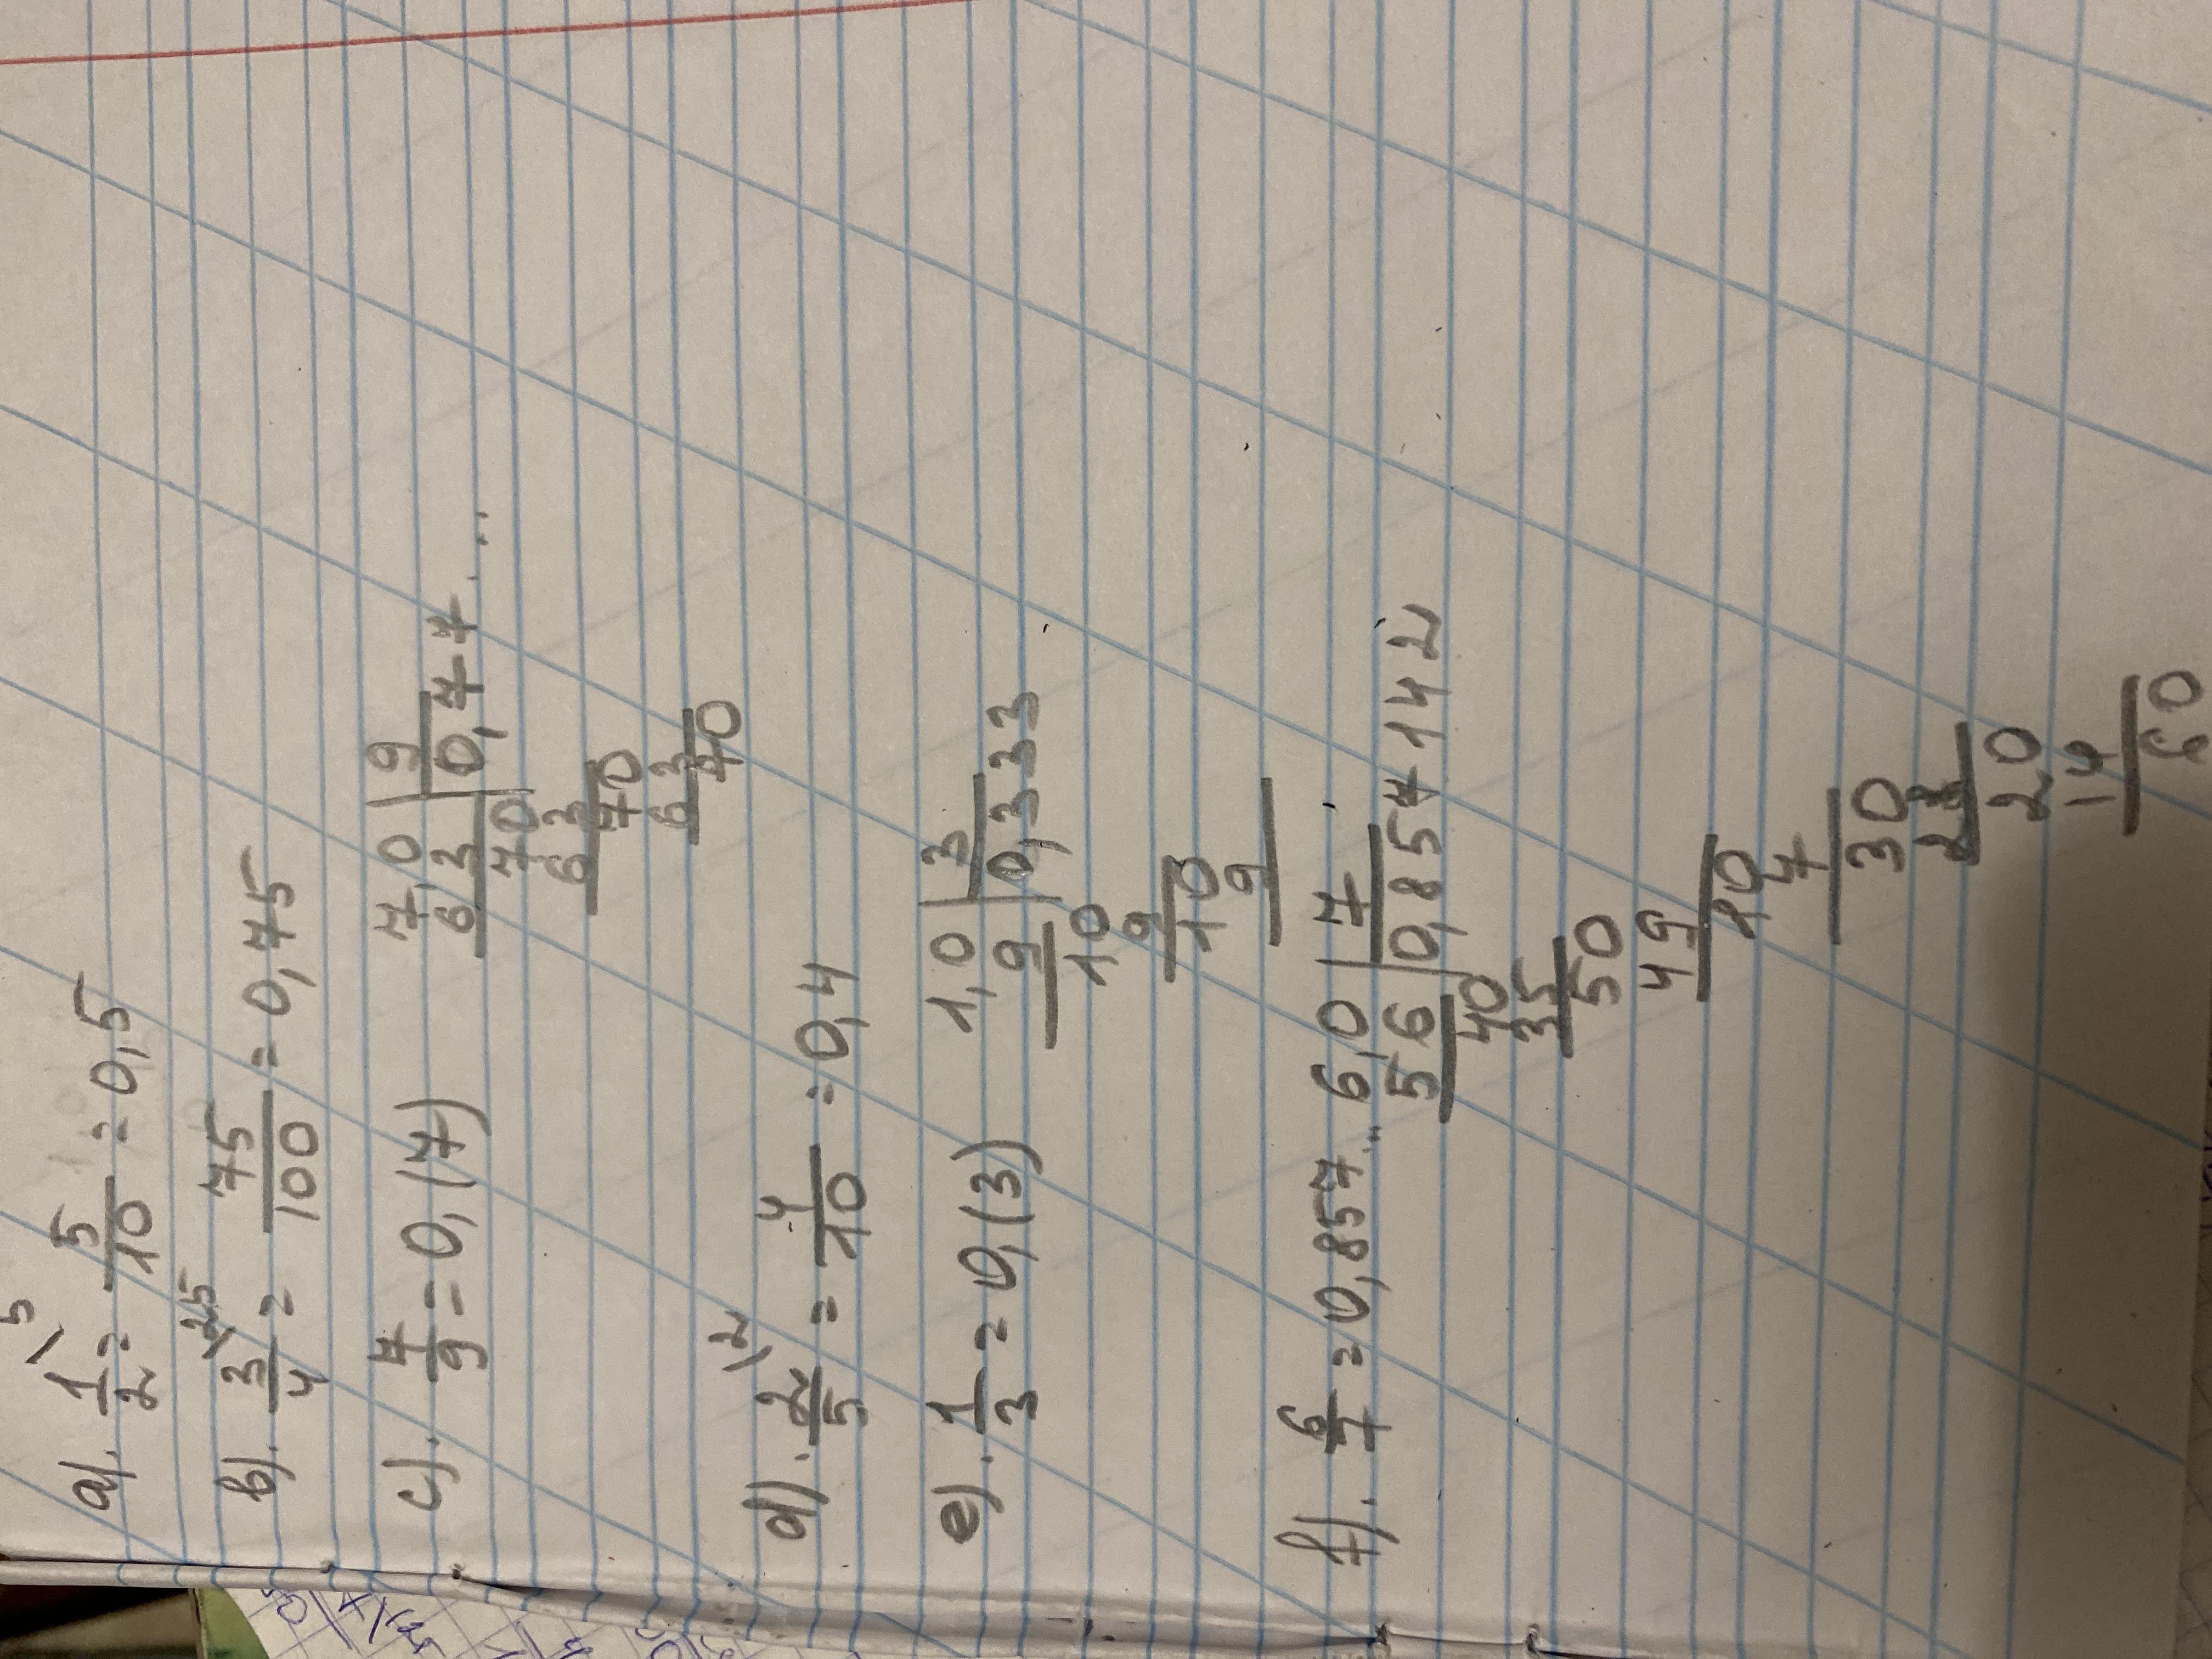 a). 1/2 \5 = 5/10 = 0,5
b). 3/4 \25 = 75/100 = 0,75
c). 7/9 = 0,(7) 7,0 | 9
6 3 | 0,77...
70
63
70
63
70
d). 2/5 \2 = 4/10 = 0,4
e). 1/3 = 0,(3) 1,0 | 3
9 | 0,333
10
9
10
9
f). 6/7 = 0,857... 6,0 | 7
56 | 0,857142
40
35
50
49
10
7
30
28
20
14
60